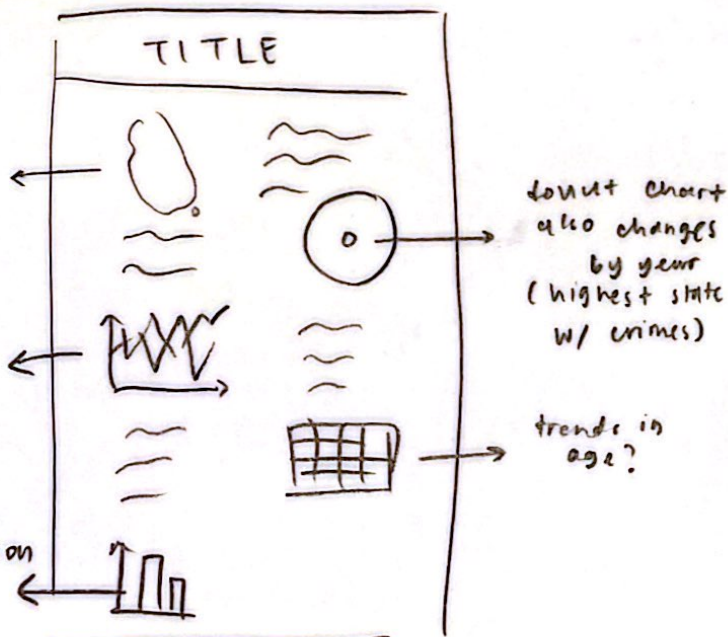 TITLE
donut chart
also changes
by year
(highest state
w/ crimes)
trends in
age?
on